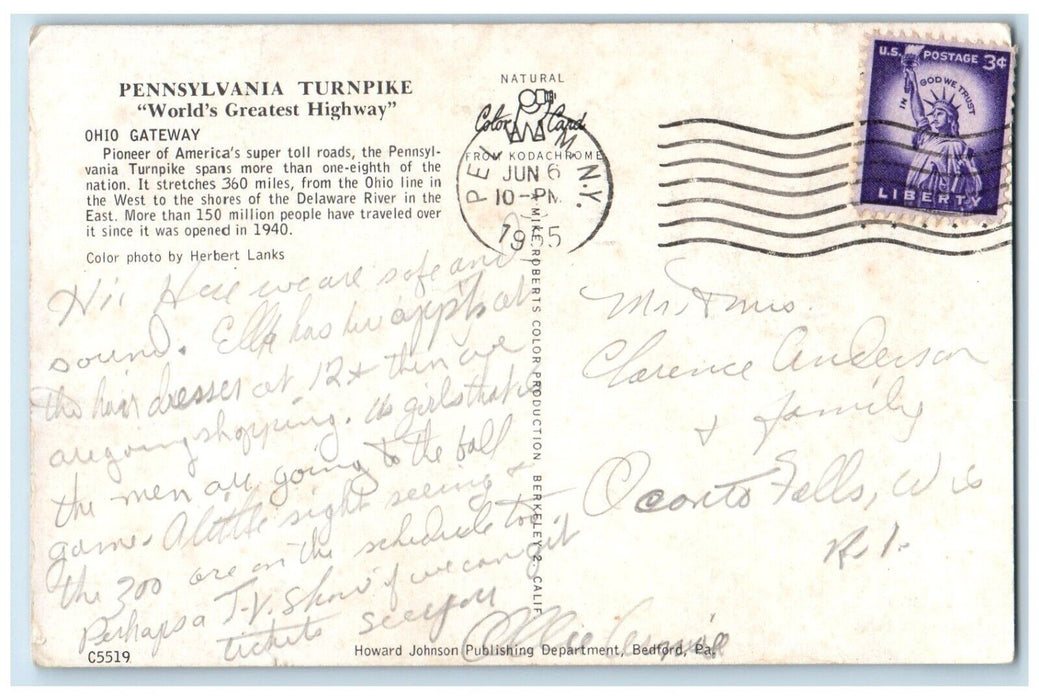 PENNSYLVANIA TURNPIKE
"World's Greatest Highway"
OHIO GATEWAY
Pioneer of America's super toll roads, the Pennsyl-
vania Turnpike spans more than one-eighth of the
nation. It stretches 360 miles, from the Ohio line in
the West to the shores of the Delaware River in the
East. More than 150 million people have traveled over
it since it was opened in 1940.
Color photo by Herbert Lanks
NATURAL
Color Card
FROM KODACHROME
JUN 6
10-PM
N.Y.
U.S. POSTAGE 3¢
IN GOD WE TRUST
LIBERTY
MIKE ROBERTS COLOR PRODUCTION, BERKELEY 2, CALIF
Hi: Here we are safe and
sound. Ella has her appt at
the hair dresser at 12 & then we
are going shopping. Us girls that is
the men are going to the ball
game. A little sight seeing &
the zoo are on the schedule too
Perhaps a T.V. Show if we can get
tickets See you
Mr. & Mrs.
Clarence Anderson
& family
Oconto Falls, Wis
R.1.
C5519
Howard Johnson Publishing Department, Bedford, Pa.